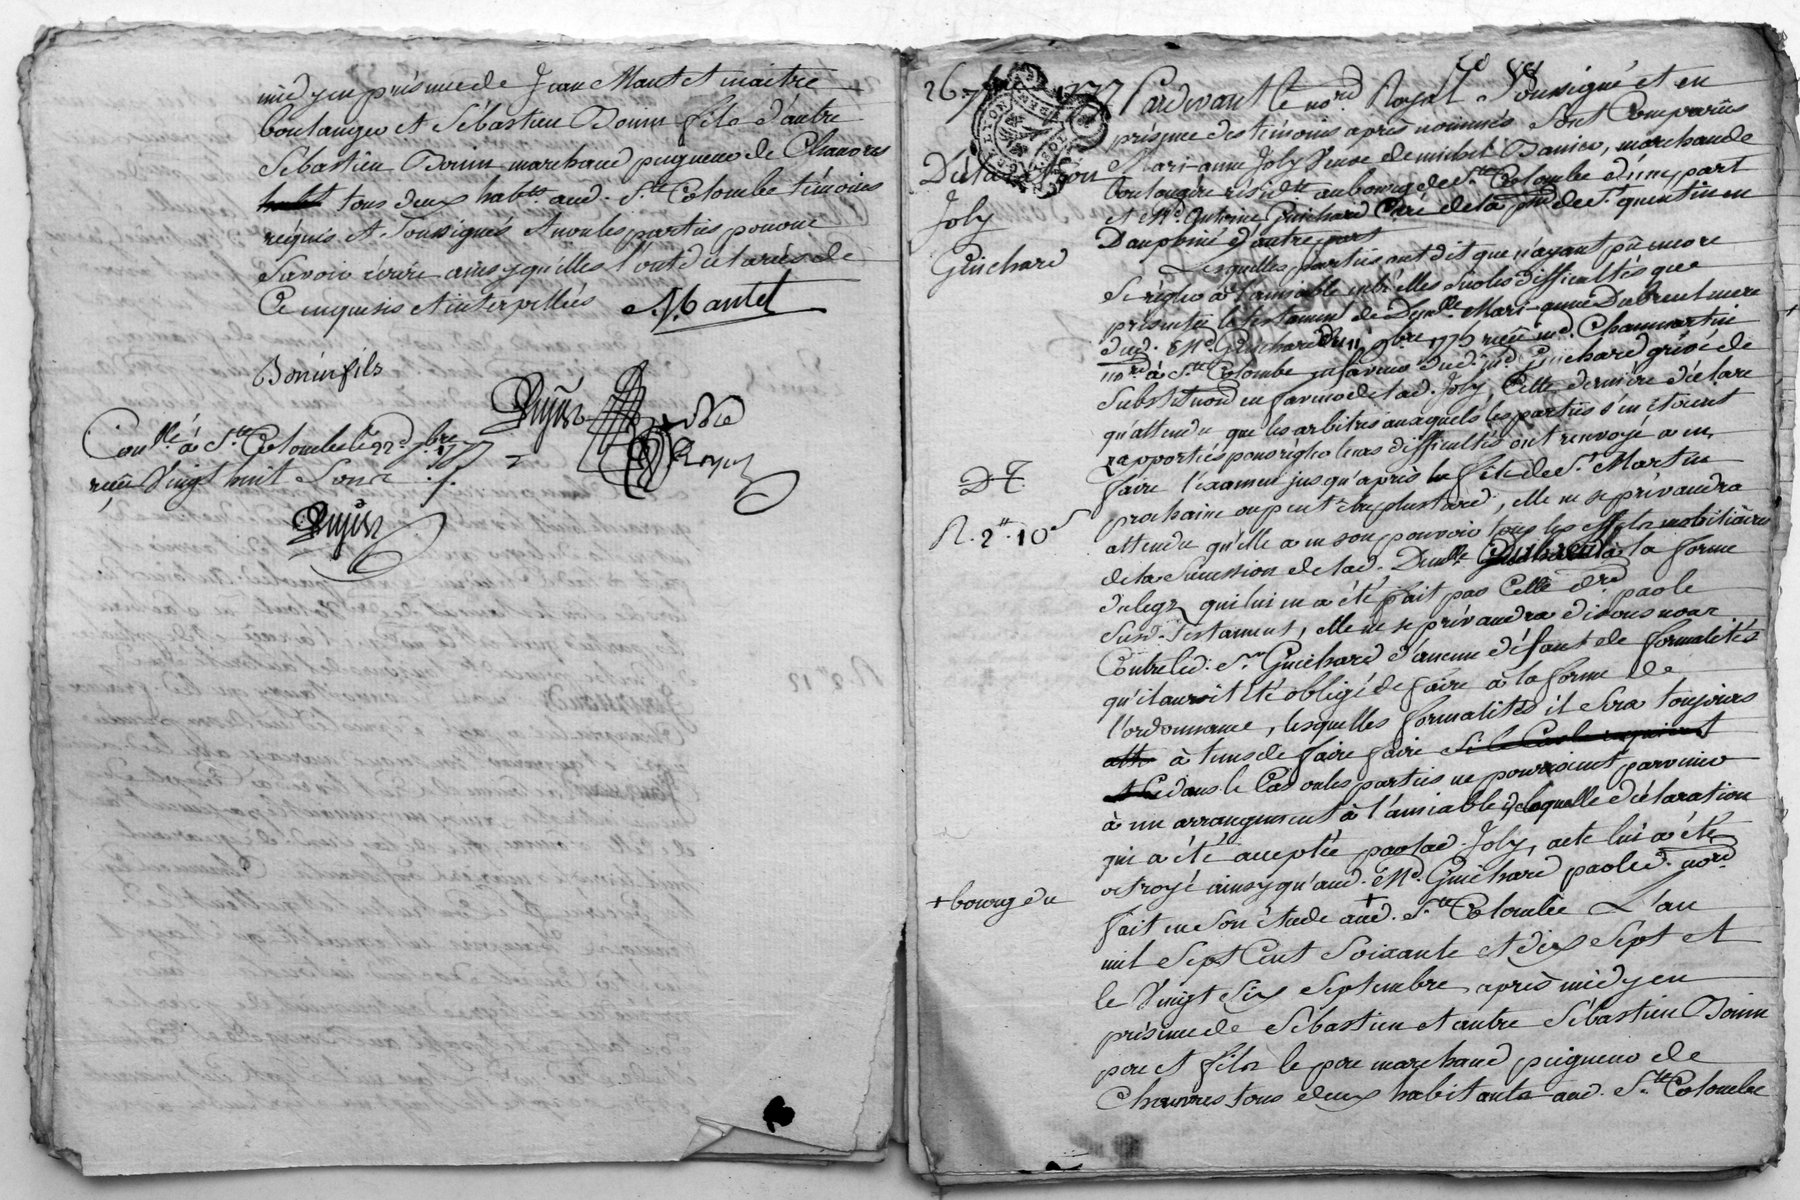 midy en présence de Jean Mantet maitre
boulanger et Sébastien Bonin fils d'autre
Sébastien Bonin marchand peigneur de Chanvres
tous deux habtt. aud. Ste Colombe témoins
requis et soussignés et non les parties pour ne
savoir écrire ainsy qu'elles l'ont déclaré de
ce enquises et interpellées JMantet
Bonin fils
Conllé à Ste Colombe le 22e 7bre 1777
reçu vingt huit sons
26 7bre 1777
Déclaration
Joly
Guichard
DF
R. 2tt 10s
+ bourg du
Pardevant le nore Royal soussigné et en
présence des témoins après nommés sont comparus
Mari-anne Joly veuve de michel Danier, marchande
boulangere résidte au bourg de Ste Colombe d'une part
et Mre Antoine Guichard Curé de la psse de St quentin en
Dauphiné d'autre part
Lesquelles parties ont dit que n'ayant pu encore
se régler à l'amiable entr'elles sur les difficultés que
présente le testament de Dlle Mari-anne Dubreul mere
dud. Mre Guichard du 11 9bre 1775 reçu me Chanmartin
nore à Ste Colombe en faveur dud. Mre Guichard grévé de
substitution en faveur de lad. Joly, cette derniere déclare
qu'attendu que les arbitres auxquels les parties s'en étoient
rapportés pour régler leurs difficultés ont renvoyé à en
faire l'examen jusqu'après la fête de St Martin
prochaine ou peut être plus tard, elle ne se prévaudra
attendu qu'elle a en son pouvoir tous les effets mobiliaires
de la succession de lad. Demlle à la forme
du legs qui lui en a été fait par celle dre par le
susd. testament, elle ne se prévaudra disons nous
contre led. Sr Guichard d'aucun défaut de formalités
qu'il auroit été obligé de faire à la forme de
l'ordonnance, lesquelles formalités il sera toujours
à tems de faire faire si le Cas le requiert
dans le Cas ou les parties ne pourroient parvenir
à un arrangement à l'amiable, de laquelle déclaration
qui a été acceptée par lad. Joly, acte lui a été
octroyé ainsy qu'aud. Mre Guichard par led. nore
fait en son étude aud. + Ste Colombe L'an
mil sept Cent soixante et dix sept et
le vingt six septembre après midy en
présence de Sébastien et autre Sébastien Bonin
pere et fils le pere marchand peigneur de
Chanvres tous deux habitants aud. Ste Colombe